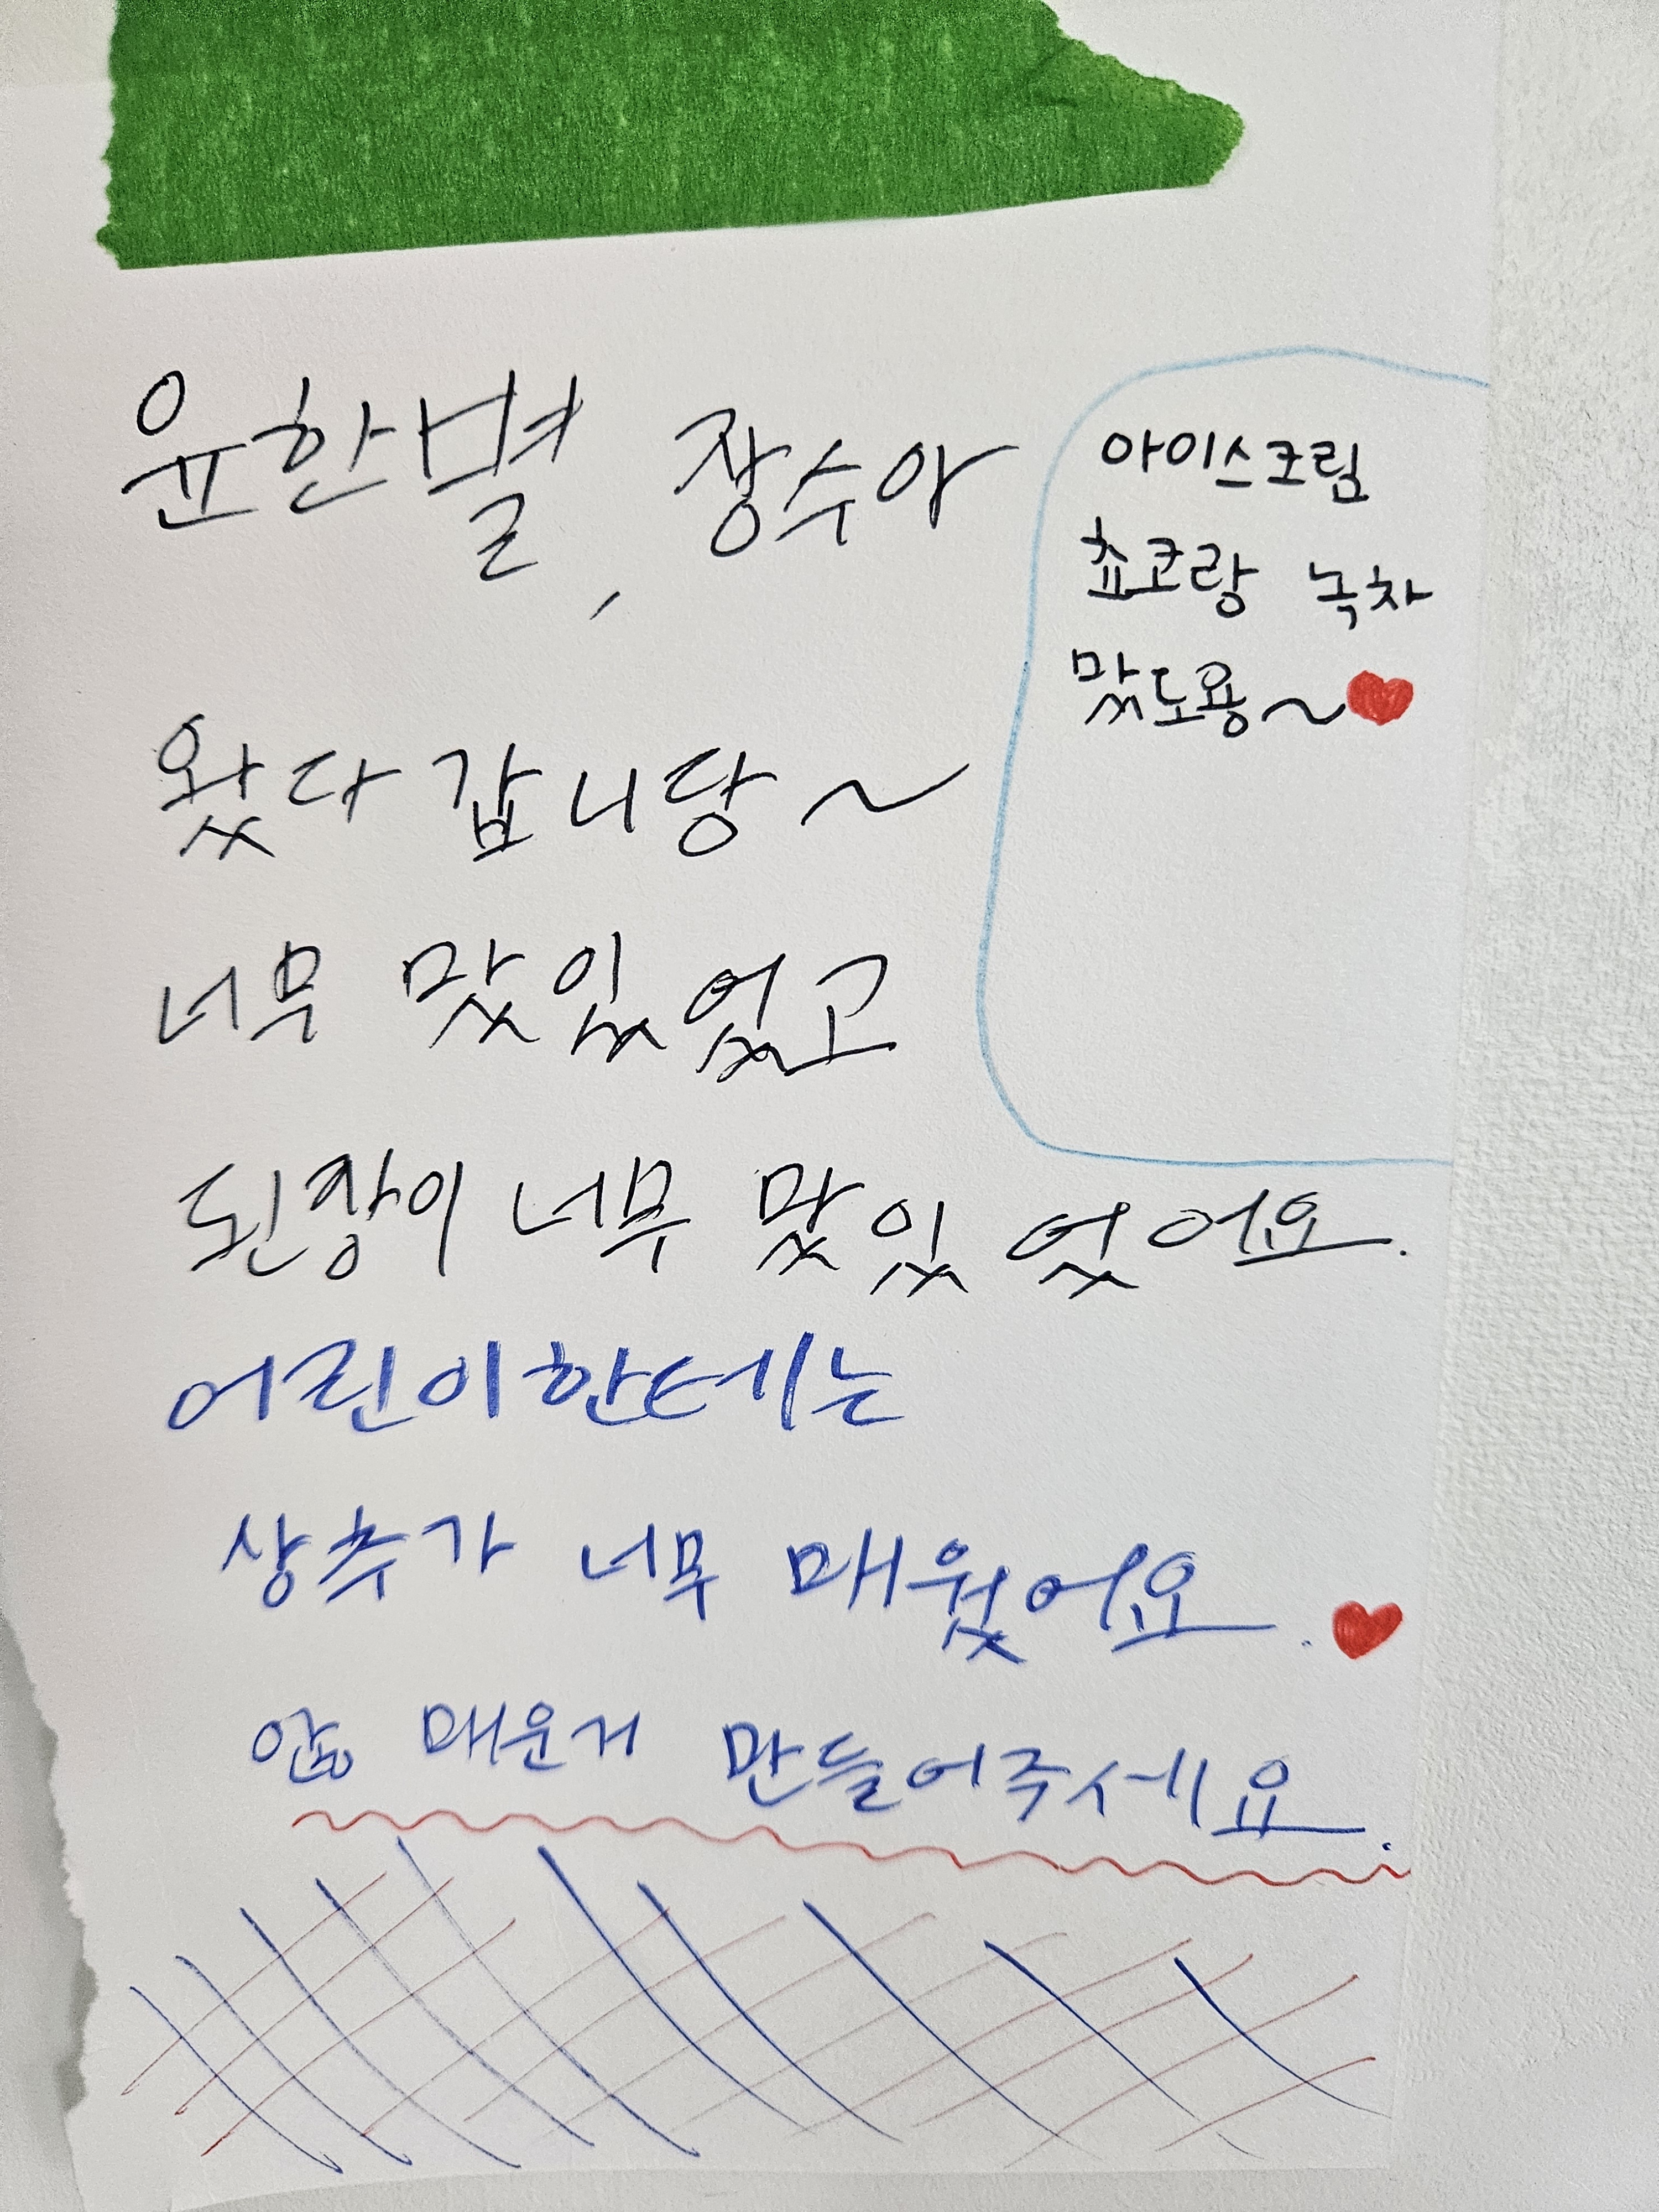 윤한별, 장수아
왔다 갑니당~
너무 맜있었고
된장이 너무 맜있었어요.
어린이한테는
상추가 너무 매웠어요.
안 매운거 만들어주세요.
아이스크림
쵸코랑 녹차
맜도용~